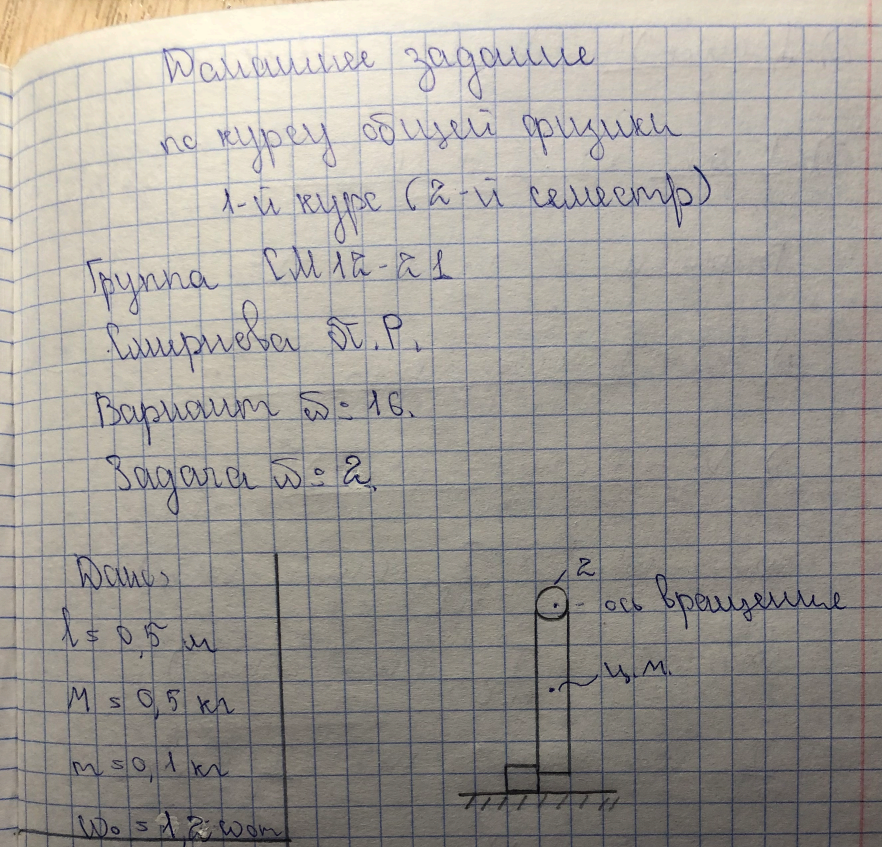 Домашнее задание
по курсу общей физики
1-й курс (2-й семестр)
Группа СМ12-21
Смирнова Т.Р.
Вариант №: 16.
Задача №: 2.
Дано:
l = 0,5 м
M = 0,5 кг
m = 0,1 кг
ω₀ = 1,2 ω₀m
2
- ось вращение
ц.м.